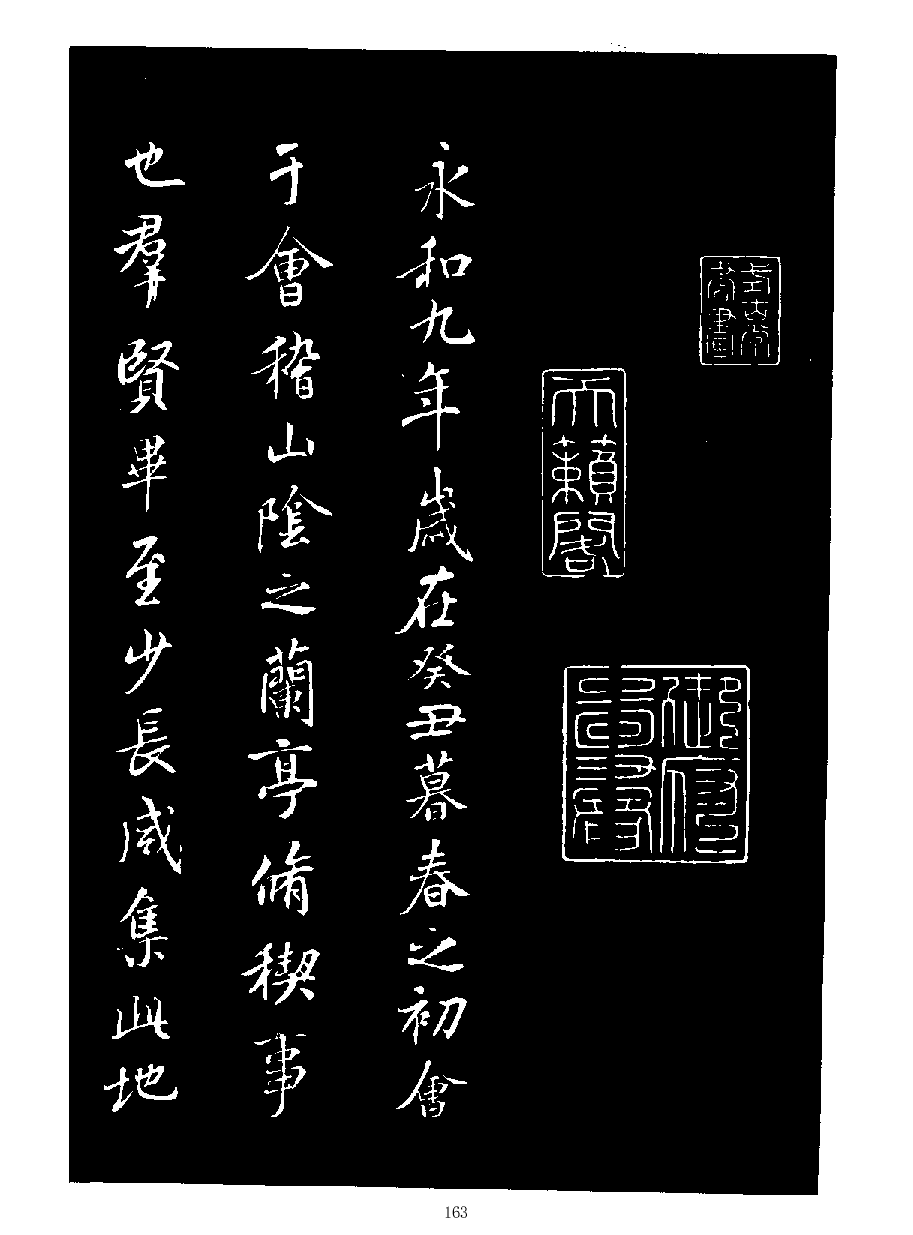 天籟閣
永和九年歲在癸丑暮春之初會
于會稽山陰之蘭亭脩稧事
也羣賢畢至少長咸集此地
163